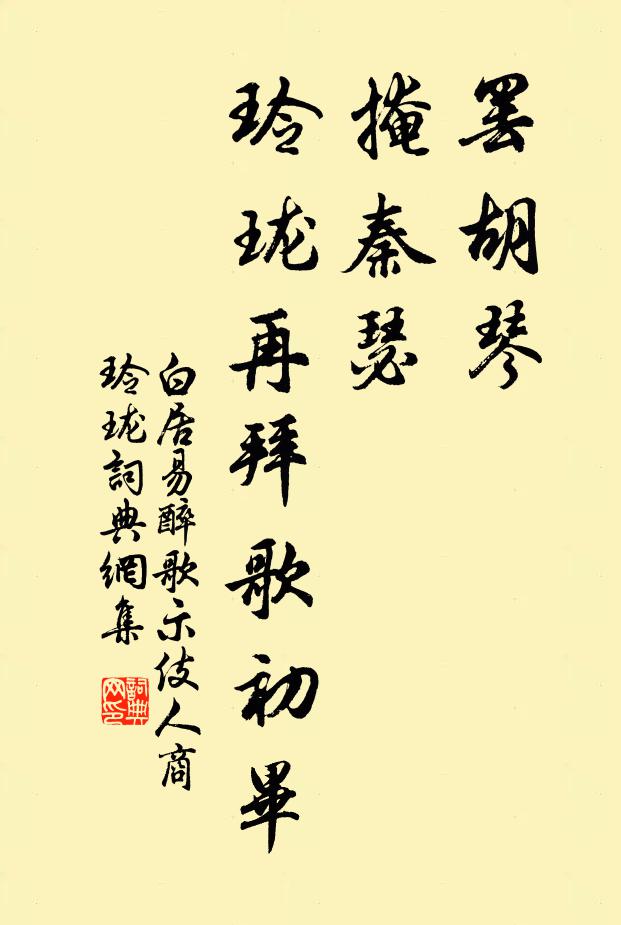 罷胡琴
掩秦瑟
玲瓏再拜歌初畢
白居易醉歌示伎人商
玲瓏詞典網集
詞典
网印